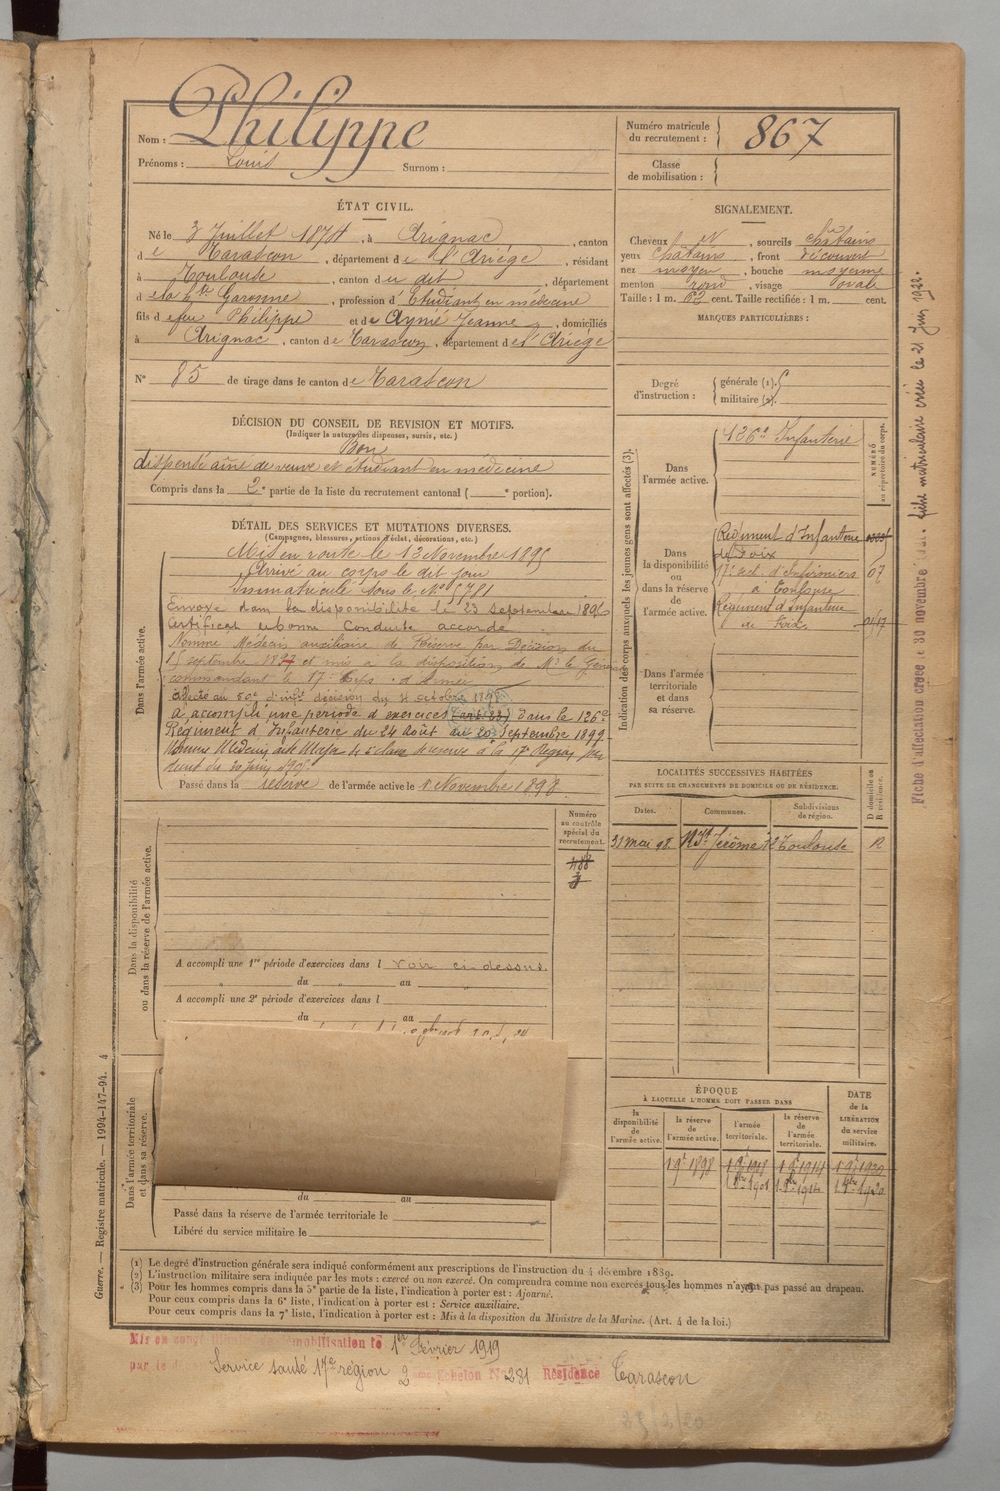 Nom : Philippe
Prénoms : Louis Surnom :
Numéro matricule du recrutement : 867
Classe de mobilisation :
ÉTAT CIVIL.
Né le 3 Juillet 1874, à Arignac, canton
de Tarascon, département de l'Ariège, résidant
à Toulouse, canton du dit, département
de la Hte Garonne, profession d'Etudiant en médecine
fils de feu Philippe et de Aynié Jeanne, domiciliés
à Arignac, canton de Tarascon, département de l'Ariége
N° 85 de tirage dans le canton de Tarascon
SIGNALEMENT.
Cheveux N, sourcils châtains
yeux châtains, front découvert
nez moyen, bouche moyenne
menton rond, visage ovale
Taille : 1 m. 62 cent. Taille rectifiée : 1 m. cent.
MARQUES PARTICULIÈRES :
Degré d'instruction : générale (1).
militaire (2).
DÉCISION DU CONSEIL DE REVISION ET MOTIFS.
(Indiquer la nature des dispenses, sursis, etc.)
Bon
dispensé aîné de veuve et étudiant en médecine
Compris dans la 2e partie de la liste du recrutement cantonal ( e portion).
DÉTAIL DES SERVICES ET MUTATIONS DIVERSES.
(Campagnes, blessures, actions d'éclat, décorations, etc.)
Dans l'armée active.
Mis en route le 13 Novembre 1895
Arrivé au corps le dit jour
Immatriculé sous le No 5781
Envoyé dans la disponibilité le 23 septembre 1896
Certificat de bonne Conduite accordé
Nommé Médecin auxiliaire de Réserve par Décision du
15 septembre 1897 et mis à la disposition de Mr le Général
commandant le 17e Corps d'Armée
Affecté au 59e d'infie décision du 4 octobre 1898
A accompli une période d'exercices (art. 23) dans le 126e
Régiment d'Infanterie du 24 Août au 20 Septembre 1899
Nommé Médecin aide Major de 2e classe de réserve à la 17e Région par
Passé dans la réserve de l'armée active le 1 Novembre 1898
Indication des corps auxquels les jeunes gens sont affectés (3).
NUMÉRO au répertoire du corps.
Dans l'armée active.
126e Infanterie
Dans la disponibilité ou dans la réserve de l'armée active.
Régiment d'Infanterie
de Foix
17e sect. d'Infirmiers 07
à Toulouse
Régiment d'Infanterie
de Foix
Dans l'armée territoriale et dans sa réserve.
LOCALITÉS SUCCESSIVES HABITÉES
PAR SUITE DE CHANGEMENTS DE DOMICILE OU DE RÉSIDENCE.
D domicile ou R résidence.
Dates. Communes. Subdivisions de région.
31 mai 98. R St Jérôme 22 Toulouse R
Dans la disponibilité ou dans la réserve de l'armée active.
Numéro au contrôle spécial du recrutement.
A accompli une 1re période d'exercices dans l voir ci-dessus
du au
A accompli une 2e période d'exercices dans l
du au
Dans l'armée territoriale et dans sa réserve.
du au
Passé dans la réserve de l'armée territoriale le
Libéré du service militaire le
ÉPOQUE
À LAQUELLE L'HOMME DOIT PASSER DANS
DATE de la LIBÉRATION du service militaire.
la disponibilité de l'armée active. la réserve de l'armée active. l'armée territoriale. la réserve de l'armée territoriale.
(1) Le degré d'instruction générale sera indiqué conformément aux prescriptions de l'instruction du 4 décembre 1889.
(2) L'instruction militaire sera indiquée par les mots : exercé ou non exercé. On comprendra comme non exercés tous les hommes n'ayant pas passé au drapeau.
(3) Pour les hommes compris dans la 5e partie de la liste, l'indication à porter est : Ajourné.
Pour ceux compris dans la 6e liste, l'indication à porter est : Service auxiliaire.
Pour ceux compris dans la 7e liste, l'indication à porter est : Mis à la disposition du Ministre de la Marine. (Art. 4 de la loi.)
Guerre. — Registre matricule. — 1994-147-94. 4
Mis en congé illimité de démobilisation le 1er Février 1919
par le Service santé 17e région 2ème Echelon No 281 Résidence Tarascon